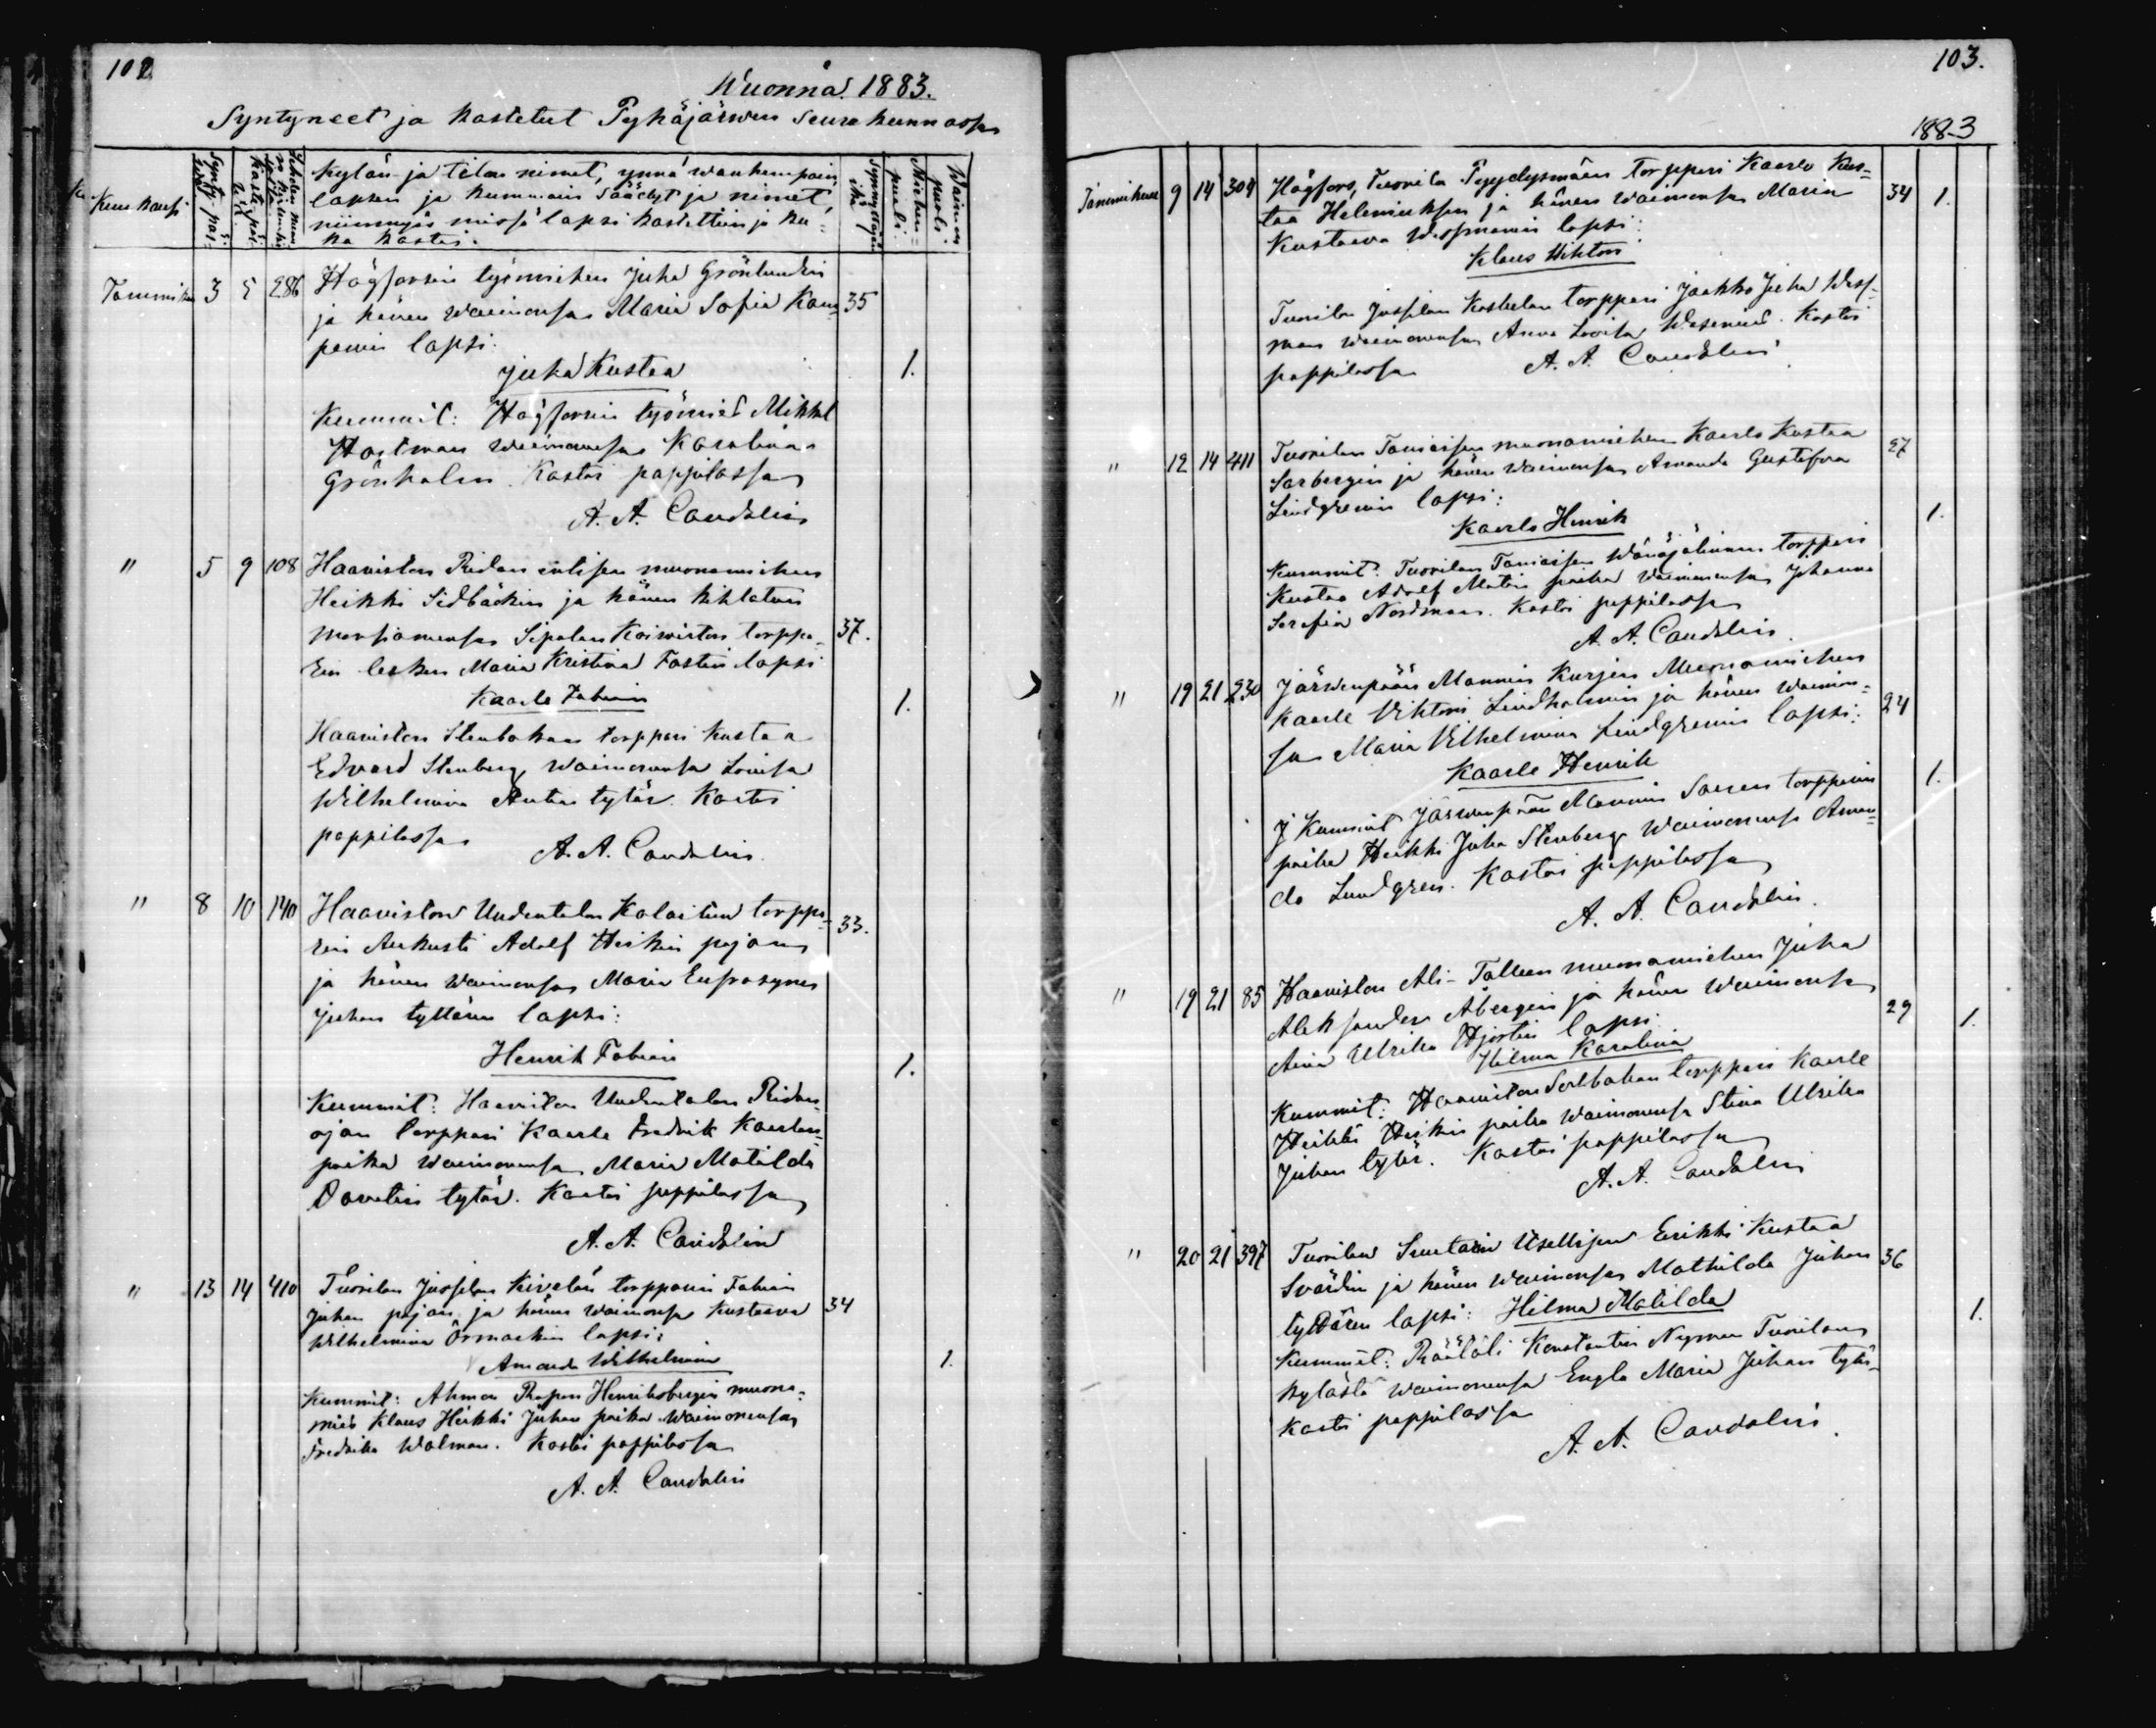 102
Wuonna 1883.
Syntyneet ja kastetut Pyhäjärwen Seurakunnassa
Kuukausi
Kylän ja tilan nimet, ynnä wanhempain,
lapsen ja kummain Säädyt ja nimet,
niinmyös missä lapsi kastettiin ja ku-
ka kastoi.
Synnyttäjän ikä
Miehen-puoli.
Waimonpuoli.
Tammikuu 3 5 286 Högforsin työmiehen Juha Grönlundin
ja hänen waimonsa Maria Sofia Kam- 35
penin lapsi:
Juha Kustaa 1.
Kummit: Högforsin työmies Mikkel
Hastman waimonensa Karolina
Grönholm. Kastoi pappilassa
A. A. Candolin
" 5 9 108 Haawiston Ridan entisen muonamiehen
Heikki Sidbäckin ja hänen kihlatun
morsiamensa Sipalan Koiwiston torppa- 37.
rin lesken Maria Kristina Fastin lapsi
Kaarle Fabian 1.
Haawiston Stenbakan torppari Kustaa
Edvard Stenberg waimonensa Lowisa
Wilhelmina Antin tytär. Kastoi
pappilassa
A. A. Candolin.
" 8 10 140 Haawiston Uudentalon Kalaitun torppa- 33.
rin Aukusti Adolf Heikin pojan
ja hänen waimonsa Maria Eufrosynen
Juhan tyttären lapsi:
Henrik Fabian 1.
Kummit: Haawiston Uudentalon Ridan-
ojan torppari Kaarle Fredrik Kaarlen-
poika waimonensa Maria Matilda
Davetin tytär. Kastoi pappilassa
A. A. Candolin
" 13 14 410 Tuorilan Jussilan Kivelän torpparin Fabian
Juhan pojan ja hänen waimonsa Kustaava 34
Wilhelmina Örmarkin lapsi:
Amanda Wilhelmina 1.
Kummit: Ahmon Henriksbergin muona-
mies Klaus Heikki Juhan poika waimonensa
Fredrika Walman. Kastoi pappilassa
A. A. Candolin
103.
1883
Tammikuu 9 14 304 Högfors, Tuorila Pyydysmäen torppari Kaarlo Kus- 34 1.
taa Heleniuksen ja hänen waimonsa Maria
Kustaava Wesmanin lapsi:
Klaus Wihtori
Tuorilan Jussilan Koskelan torppari Jaakko Juha Wess-
man waimonensa Anna Lovisa Wesenius. Kastoi
pappilassa A. A. Candolin
" 12 14 411 Tuorilan Tanisen muonamiehen Kaarlo Kustaa 27
Sarbergin ja hänen waimonsa Amanda Gustafva
Lindgrenin lapsi:
Kaarlo Henrik 1.
Kummit: Tuorilan Tanisen torppari
Kustaa Adolf Matin poika waimonensa Johanna
Serafia Nordman. Kastoi pappilassa
A. A. Candolin.
" 19 21 230 Järwenpään Mannin Kurjen Muonamiehen
Kaarle Viktori Lindholmin ja hänen waimon- 24
sa Maria Wilhelmina Lindgrenin lapsi:
Kaarle Henrik 1.
Kummit Järwenpään Mannin Saaren torpparin
poika Heikki Juha Stenberg waimonensa Aman-
da Lundgren. Kastoi pappilassa
A. A. Candolin.
" 19 21 85 Haawiston Ali-Talleen muonamiehen Juha
Aleksander Åbergin ja hänen waimonsa 29 1.
Aina Ulrika Hjortin lapsi.
Hilma Karolina
Kummit: Haawiston Sorlbakan torppari Kaarle
Heikki Heikin poika waimonensa Stina Ulrika
Juhan tytär. Kastoi pappilassa
A. A. Candolin
" 20 21 397 Tuorilan Itsellisen Eerikki Kustaa
Svärdin ja hänen waimonsa Mathilda Juhan 36
tyttären lapsi: Hilma Matilda 1.
Kummit: Räätäli Konstantin Nyman Tuorilan
kylästä waimonensa Engla Maria Juhan tytär
Kastoi pappilassa
A. A. Candolin.